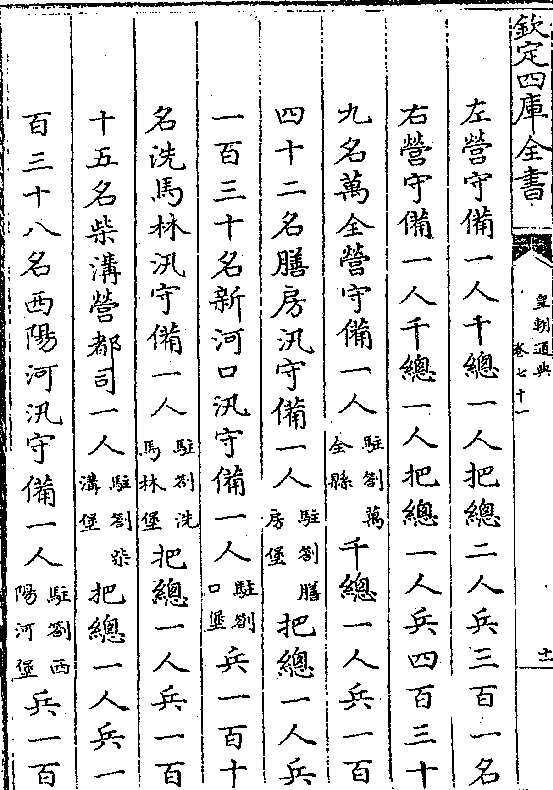 欽定四庫全書
皇朝通典
卷七十一
十一
左營守備一人千總一人把總二人兵三百一名
右營守備一人千總一人把總一人兵四百三十
九名萬全營守備一人駐劄萬全縣千總一人兵一百
四十二名膳房汛守備一人駐劄膳房堡把總一人兵
一百三十名新河口汛守備一人駐劄口堡兵一百十
名洗馬林汛守備一人駐劄洗馬林堡把總一人兵一百
十五名柴溝營都司一人駐劄柴溝堡把總一人兵一
百三十八名西陽河汛守備一人駐劄西陽河堡兵一百